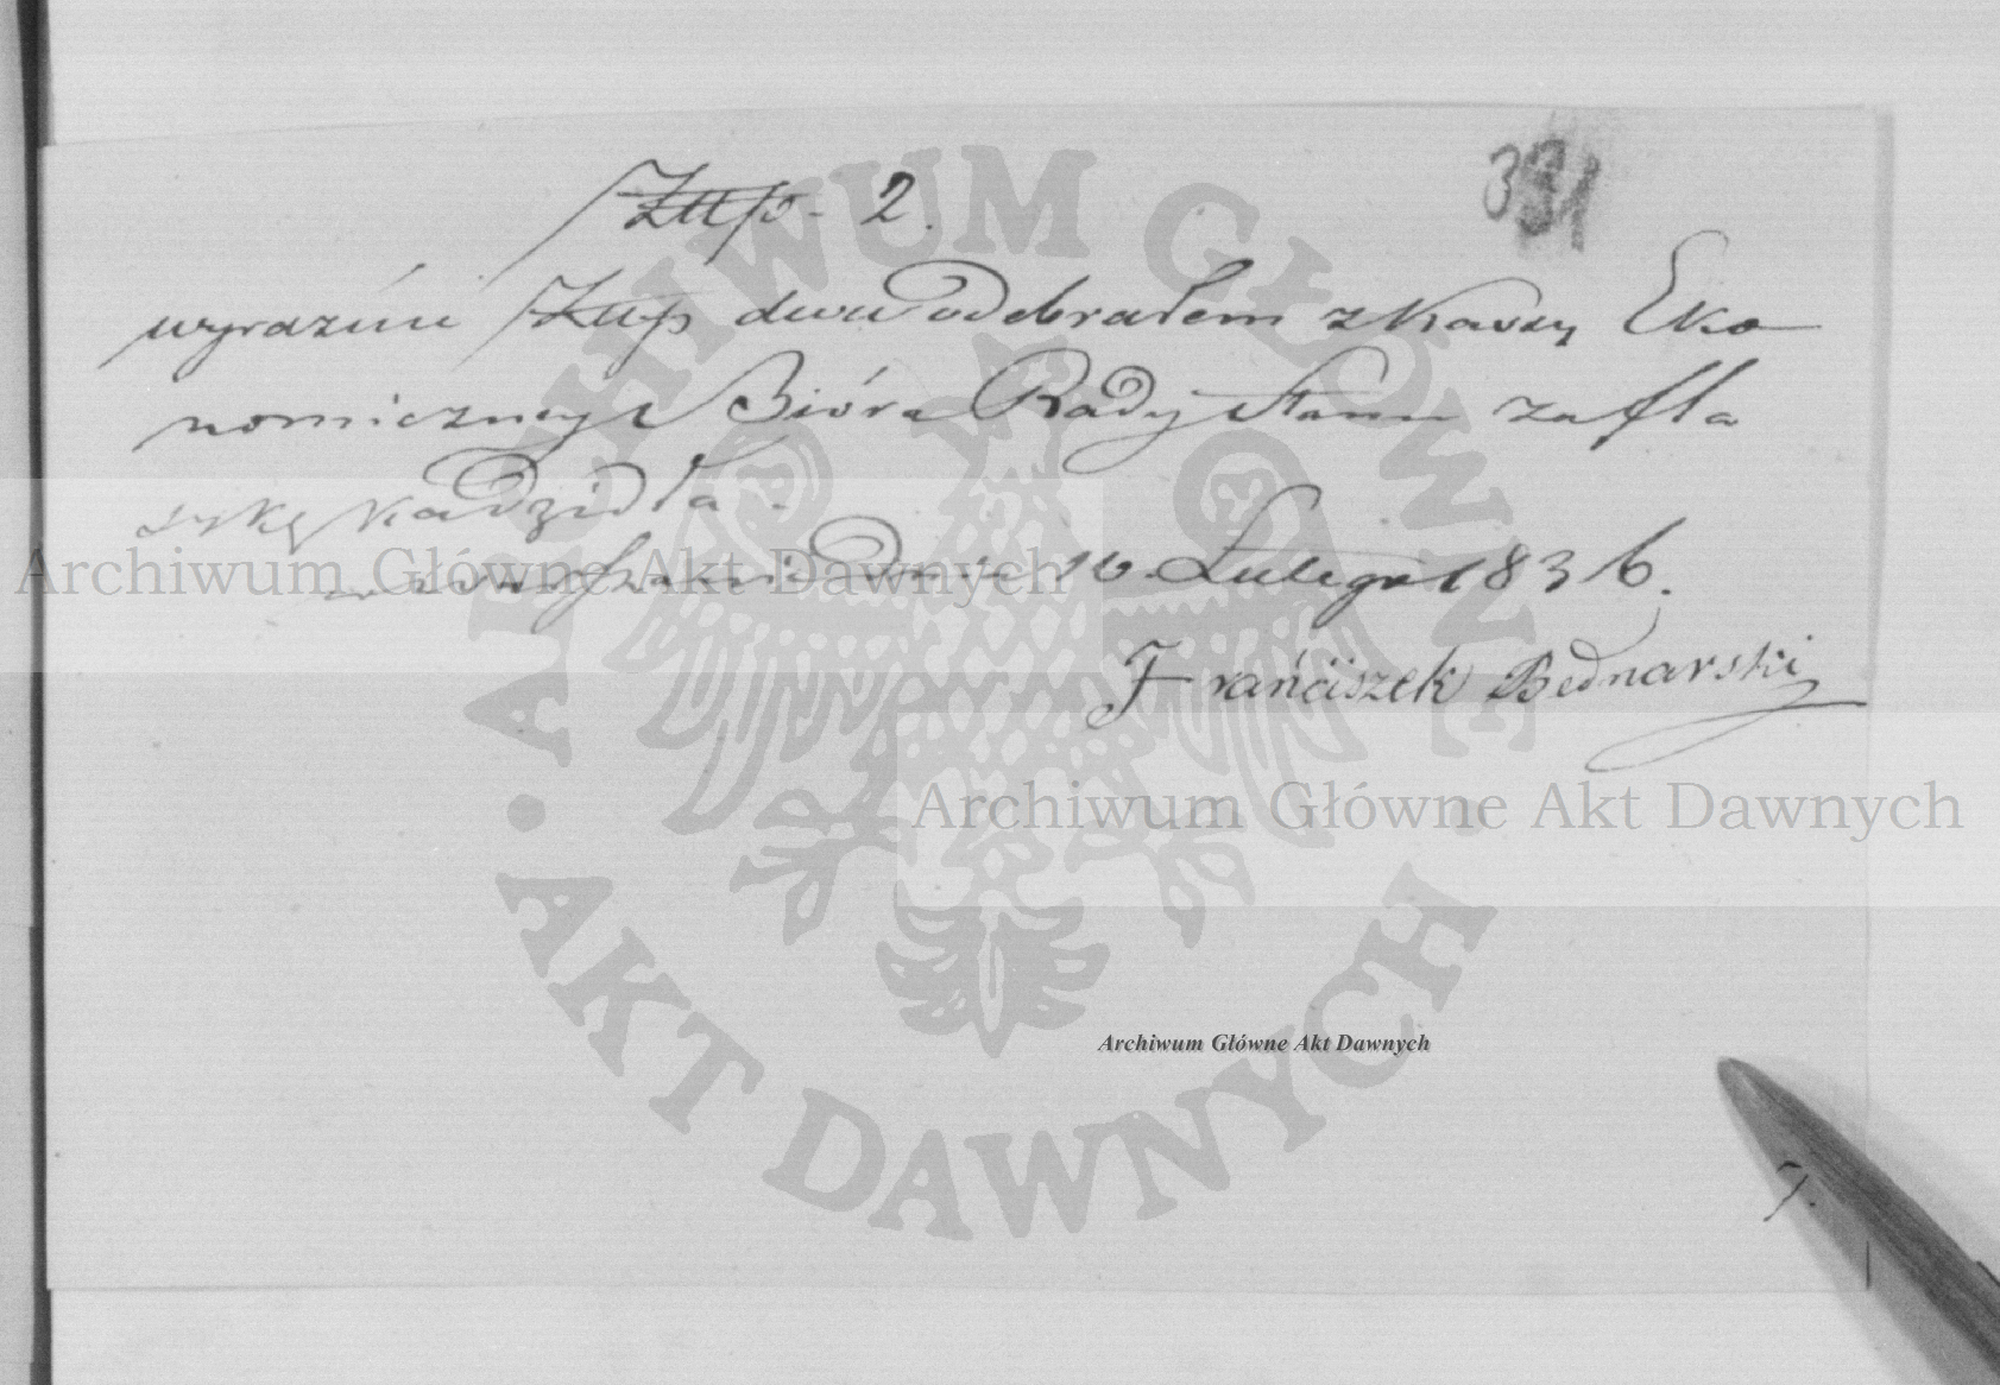 331
Złtp. 2.
wyraźnie Złtp dwa odebrałem z Kassy Eko
nomiczney Bióra Rady Stanu za fla
szkę Kadzidła.
w Warszawie Dnia 10. Lutego 1836.
Frańciszek Bednarski
7.
ARCHIWUM GŁÓWNE
AKT DAWNYCH
Archiwum Główne Akt Dawnych
Archiwum Główne Akt Dawnych
Archiwum Główne Akt Dawnych